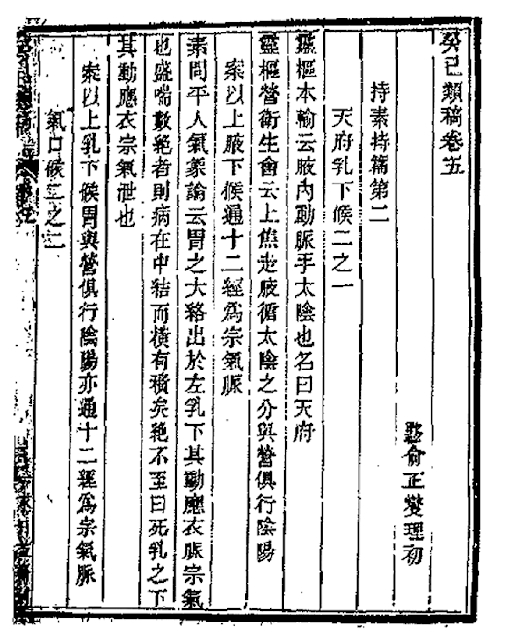 癸巳類稿卷五
黟俞正燮理初
持素持篇第二
天府乳下候二之一
靈樞本輸云腋內動脈手太陰也名曰天府
靈樞營衛生會云上焦走腋循太陰之分與營俱行陰陽
案以上腋下候通十二經爲宗氣脈
素問平人氣象論云胃之大絡出於左乳下其動應衣脈宗氣
也盛喘數絶者則病在中結而橫有積矣絶不至曰死乳之下
其動應衣宗氣泄也
案以上乳下候胃與營俱行陰陽亦通十二經爲宗氣脈
氣口候二之二